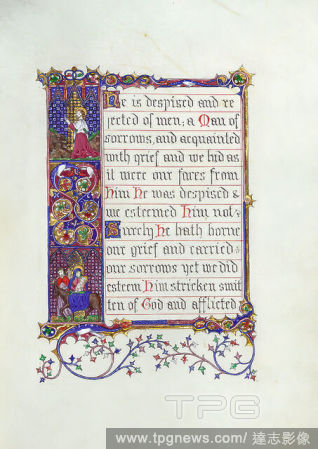 He is despised and re
jected of men; a Man of
sorrows, and acquainted
with grief and we hid as
it were our faces from
him He was despised &
we esteemed Him not.
Surely He hath borne
our grief and carried
our sorrows yet we did
esteem Him stricken smit
ten of God and afflicted
TPG
www.tpgnews.com/ 達志影像